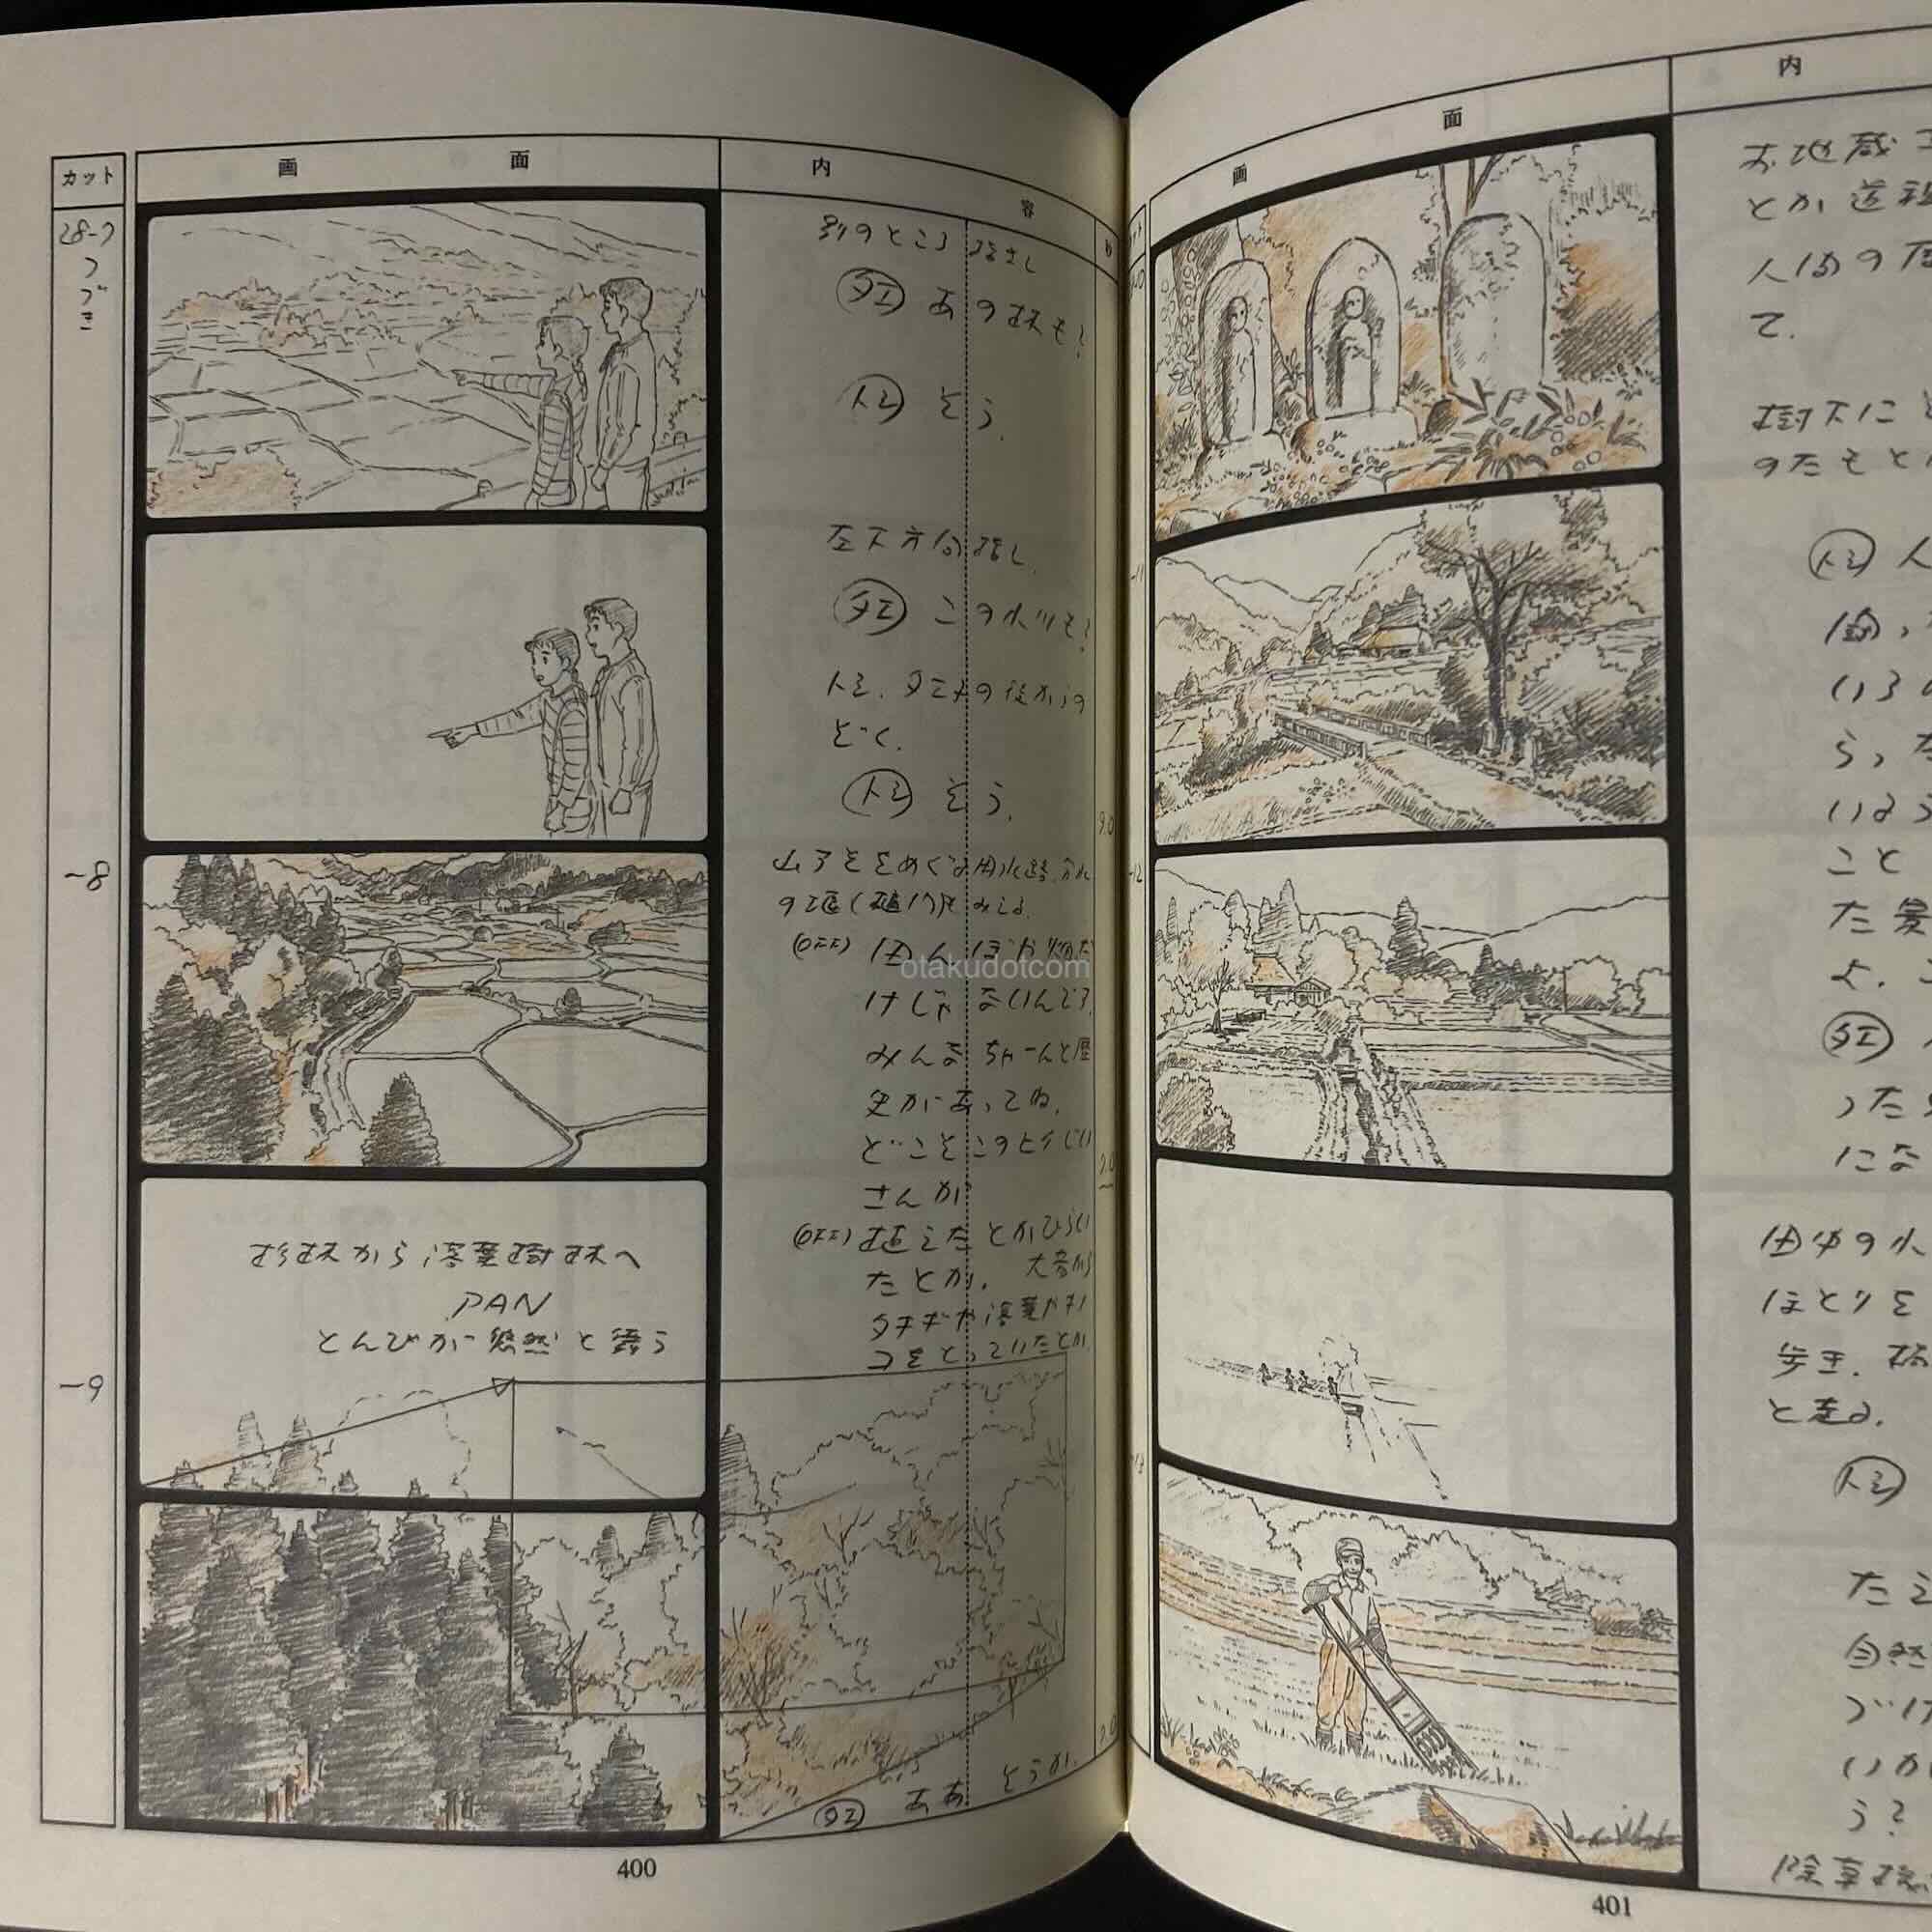 カット
画 面
内 容
28-7
つづき
別のところ 指さし
タエ あの林も?
トシ そう。
左下方向指し
タエ この小川も?
トシ、タエ子の後からの
ぞく。
トシ そう。
-8
(OFF) 田んぼや畑だ
otakudotcom
けじゃないんです。
みんなちゃーんと歴
史があってね。
どこそこのヒイじい
さんが
(OFF) 植えたとかひらい
たとか、大昔から
タキギや落葉やキノ
コをとっていたとか
9.0
2.0
杉林から落葉樹林へ
PAN
とんびが悠然と舞う
-9
タエ ああ そうか。
400
画 面
内
お地蔵
とか道祖
て。
樹下に
のたもと
トシ 人
いろ
-11
-12
こと
た景
よ。
タエ
った
にな
田中の小
ほとりを
歩き、
と走る。
トシ
たえ
自然
づけ
いか
う?
除草機
401